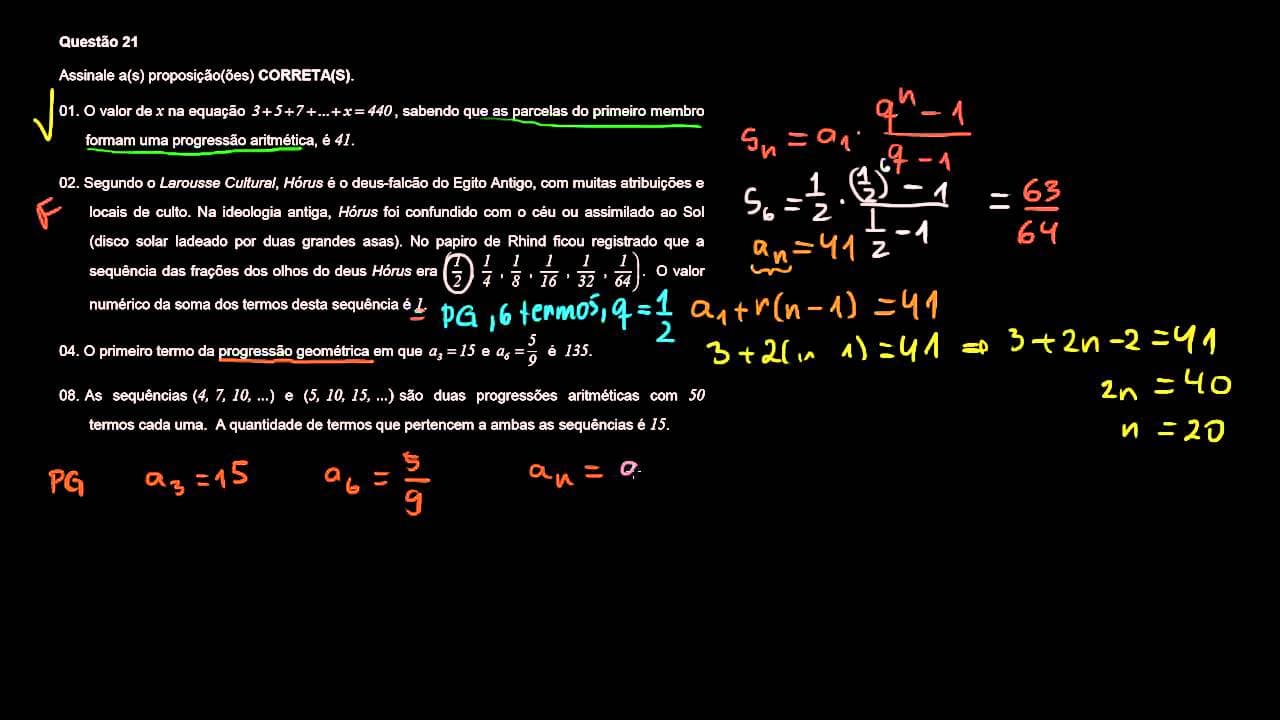 Questão 21
Assinale a(s) proposição(ões) CORRETA(S).
01. O valor de x na equação 3+5+7+...+x=440, sabendo que as parcelas do primeiro membro
formam uma progressão aritmética, é 41.
02. Segundo o Larousse Cultural, Hórus é o deus-falcão do Egito Antigo, com muitas atribuições e
F
locais de culto. Na ideologia antiga, Hórus foi confundido com o céu ou assimilado ao Sol
(disco solar ladeado por duas grandes asas). No papiro de Rhind ficou registrado que a
sequência das frações dos olhos do deus Hórus era (1/2, 1/4, 1/8, 1/16, 1/32, 1/64). O valor
numérico da soma dos termos desta sequência é 1.
PG, 6 termos, q = 1/2
04. O primeiro termo da progressão geométrica em que a₃=15 e a₆=5/9 é 135.
08. As sequências (4, 7, 10, ...) e (5, 10, 15, ...) são duas progressões aritméticas com 50
termos cada uma. A quantidade de termos que pertencem a ambas as sequências é 15.
PG a₃ = 15 a₆ = 5/9 aₙ = a
Sₙ = a₁ · (qⁿ − 1)/(q − 1)
S₆ = 1/2 · ((1/2)⁶ − 1)/(1/2 − 1) = 63/64
aₙ = 41
a₁ + r(n − 1) = 41
3 + 2(n 1) = 41 ⇒ 3 + 2n − 2 = 41
2n = 40
n = 20